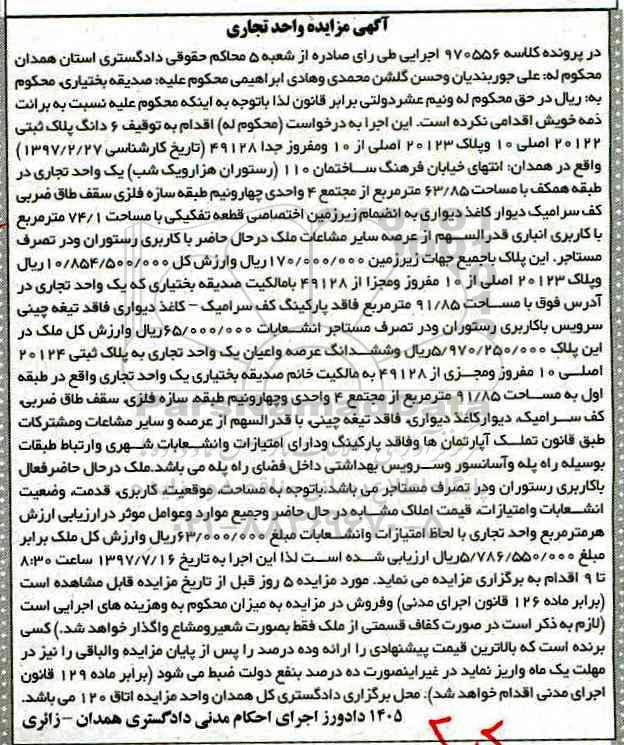 آگهی مزایده واحد تجاری
در پرونده کلاسه ۹۷۰۵۵۶ اجرایی طی رای صادره از شعبه ۵ محاکم حقوقی دادگستری استان همدان
محکوم له: علی جوربندیان وحسن گلشن محمدی وهادی ابراهیمی محکوم علیه: صدیقه بختیاری، محکوم
به: ریال در حق محکوم له ونیم عشردولتی برابر قانون لذا باتوجه به اینکه محکوم علیه نسبت به برائت
ذمه خویش اقدامی نکرده است. این اجرا به درخواست (محکوم له) اقدام به توقیف ۶ دانگ پلاک ثبتی
۲۰۱۲۲ اصلی ۱۰ وپلاک ۲۰۱۲۳ اصلی از ۱۰ ومفروز جدا ۴۹۱۲۸ (تاریخ کارشناسی ۱۳۹۷/۲/۲۷)
واقع در همدان: انتهای خیابان فرهنگ ساختمان ۱۱۰ (رستوران هزارویک شب) یک واحد تجاری در
طبقه همکف با مساحت ۶۳/۸۵ مترمربع از مجتمع ۴ واحدی چهارونیم طبقه سازه فلزی سقف طاق ضربی
کف سرامیک دیوار کاغذ دیواری به انضمام زیرزمین اختصاصی قطعه تفکیکی با مساحت ۷۴/۱ مترمربع
با کاربری انباری قدر السهم از عرصه سایر مشاعات ملک درحال حاضر با کاربری رستوران ودر تصرف
مستاجر. این پلاک باجمیع جهات زیرزمین ۱۷۰/۰۰۰/۰۰۰ریال وارزش کل ۱۰/۸۵۴/۵۰۰/۰۰۰ریال
وپلاک ۲۰۱۲۳ اصلی از ۱۰ مفروز ومجزا از ۴۹۱۲۸ بامالکیت صدیقه بختیاری که یک واحد تجاری در
آدرس فوق با مساحت ۹۱/۸۵ مترمربع فاقد پارکینگ کف سرامیک – کاغذ دیواری فاقد تیغه چینی
سرویس باکاربری رستوران ودر تصرف مستاجر انشعابات ۶۵/۰۰۰/۰۰۰ریال وارزش کل ملک در
این پلاک ۵/۹۷۰/۲۵۰/۰۰۰ریال وششدانگ عرصه واعیان یک واحد تجاری به پلاک ثبتی ۲۰۱۲۴
اصلی ۱۰ مفروز ومجزی از ۴۹۱۲۸ به مالکیت خانم صدیقه بختیاری یک واحد تجاری واقع در طبقه
اول به مساحت ۹۱/۸۵ مترمربع از مجتمع ۴ واحدی وچهارونیم طبقه، سازه فلزی، سقف طاق ضربی،
کف سرامیک، دیوارکاغذ دیواری، فاقد تیغه چینی، با قدرالسهم از عرصه و سایر مشاعات ومشترکات
طبق قانون تملک آپارتمان ها وفاقد پارکینگ ودارای امتیازات وانشعابات شهری وارتباط طبقات
بوسیله راه پله وآسانسور وسرویس بهداشتی داخل فضای راه پله می باشد.ملک درحال حاضرفعال
باکاربری رستوران ودر تصرف مستاجر می باشد.باتوجه به مساحت، موقعیت، کاربری، قدمت، وضعیت
انشعابات وامتیازات، قیمت املاک مشابه در حال حاضر وجمیع موارد وعوامل موثر درارزیابی ارزش
هرمترمربع واحد تجاری با لحاظ امتیازات وانشعابات مبلغ ۶۳/۰۰۰/۰۰۰ریال وارزش کل ملک برابر
مبلغ ۵/۷۸۶/۵۵۰/۰۰۰ریال ارزیابی شده است لذا این اجرا به تاریخ ۱۳۹۷/۷/۱۶ ساعت ۸:۳۰
تا ۹ اقدام به برگزاری مزایده می نماید. مورد مزایده ۵ روز قبل از تاریخ مزایده قابل مشاهده است
(برابر ماده ۱۲۶ قانون اجرای مدنی) وفروش در مزایده به میزان محکوم به وهزینه های اجرایی است
(لازم به ذکر است در صورت کفاف قسمتی از ملک فقط بصورت شعیرومشاع واگذار خواهد شد.) کسی
برنده است که بالاترین قیمت پیشنهادی را ارائه وده درصد را پس از پایان مزایده والباقی را نیز در
مهلت یک ماه واریز نماید در غیراینصورت ده درصد بنفع دولت ضبط می شود (برابر ماده ۱۲۹ قانون
اجرای مدنی اقدام خواهد شد): محل برگزاری دادگستری کل همدان واحد مزایده اتاق ۱۲۰ می باشد.
۱۴۰۵ دادورز اجرای احکام مدنی دادگستری همدان – زائری